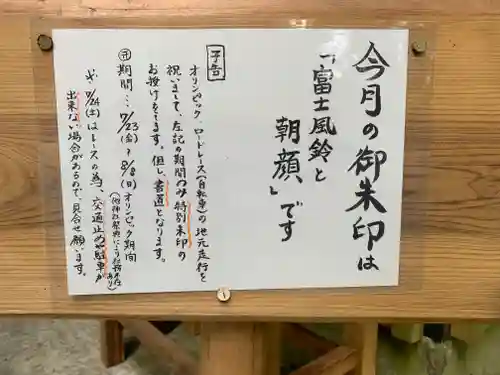 今月の御朱印は
「富士風鈴と
朝顔」です
予告
オリンピック、ロードレース(自転車)の地元走行を
祝いまして、左記の期間のみ特別朱印の
お授けをします。但し、書置となります。
期間… 7/23(金)〜8/8(日)オリンピック期間
(他神社祭典により
あり)
7/24(土)はレースの為、交通止めや駐車が
出来ない場合があるので、見合せ願います。